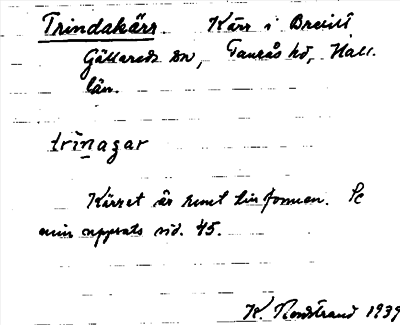 Trindakärr. Kärr i Breitt
Gällareds sn, Faurås hd, Hall.
län.
trinagar
Kärret är runt till formen. Se
min uppsats sid. 45.
K. Nordstrand 1939